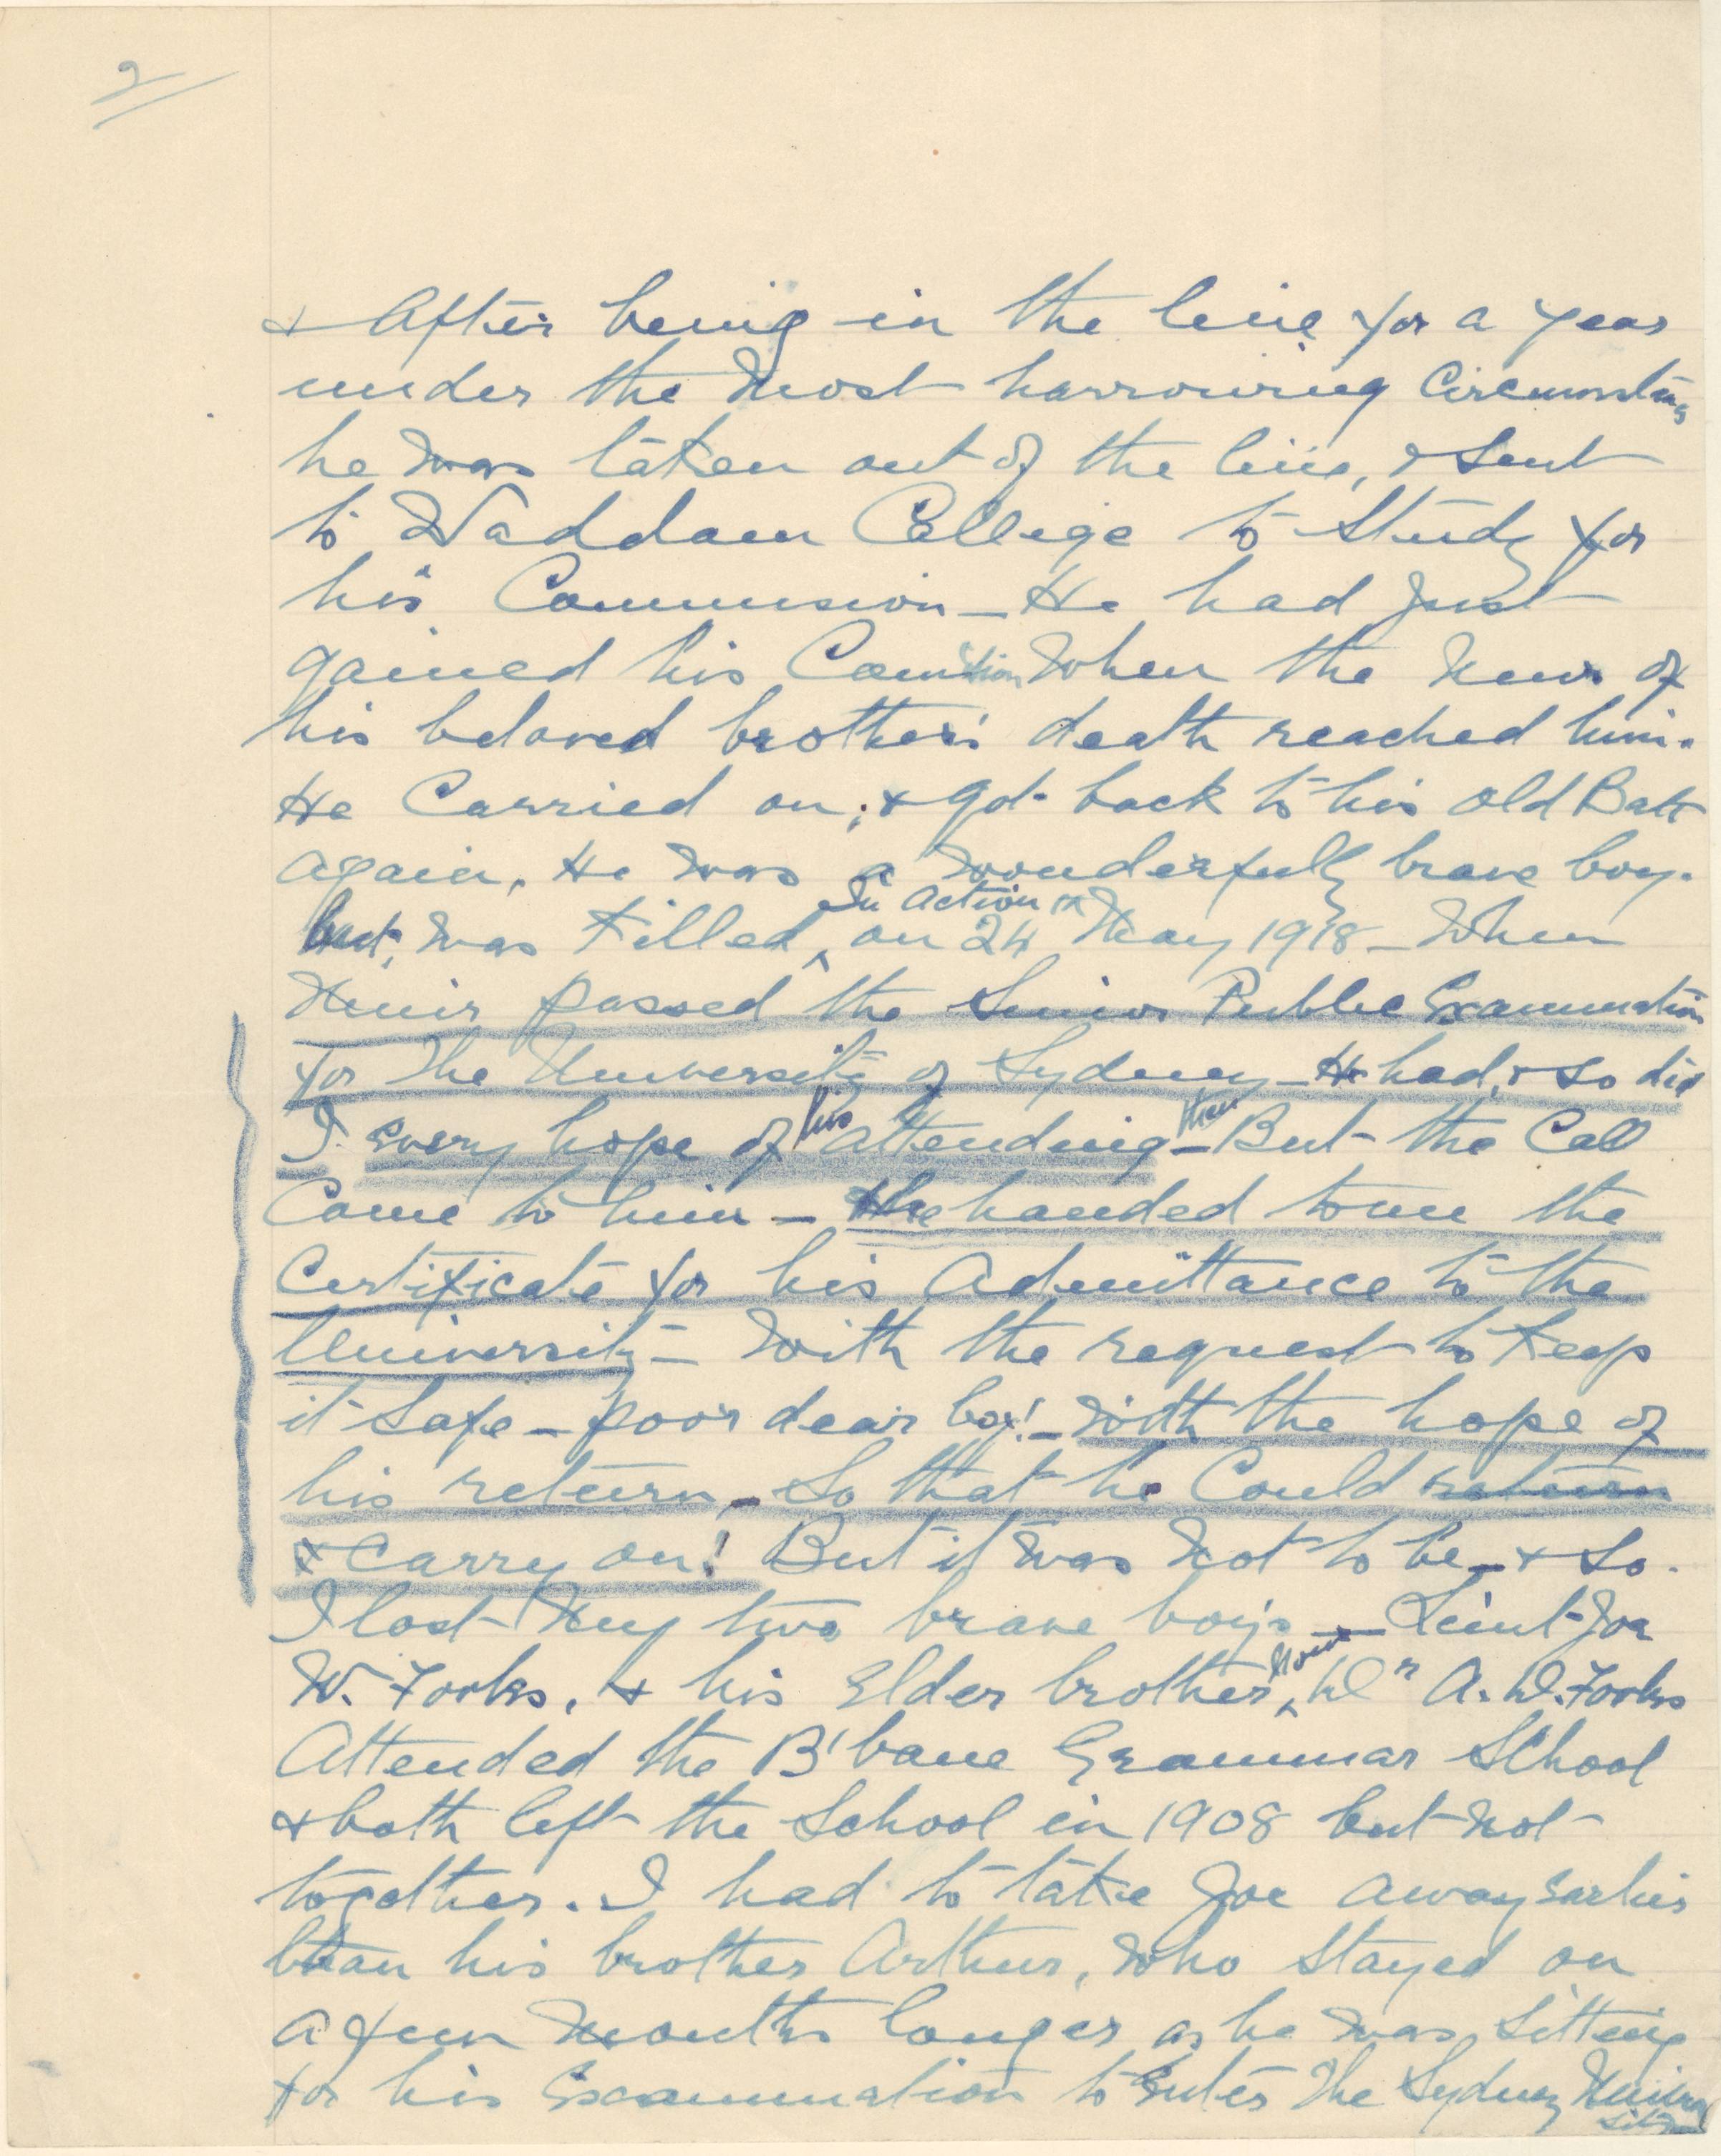 2
& After being in the line for a year
under the most harrowing Circumstans
he was taken out of the line, & sent
to Waddam College to Study for
his Commision – He had Just
gained his Comistion When the News of
his beloved brother's death reached him.
He Carried on; & got back to his old Batt
again. He was a wonderfully brave boy.
but, was Killed, in Action on 24th May 1918 – When
Muir passed the Senior Public Examination
for The University of Sydney – He had, & so did
I every hope of his attending then – But the Call
Came to him – He handed to me the
Certificate for his Admittance to the
University – With the request to Keep
it Safe – poor dear boy! – With the hope of
his return – So that he Could return
& Carry on! But it was Not to be – & So.
I lost My two brave boys — Leiut Joe
W. Fooks, & his Elder brother, Now Dr A. D. Fooks
Attended the B'bane Grammar School
& both left the School in 1908 but not
together. I had to take Joe away earlier
than his brother Arthur, Who Stayed on
a few Months longer as he was Sitting
for his Examination to Enter The Sydney Univer
sity